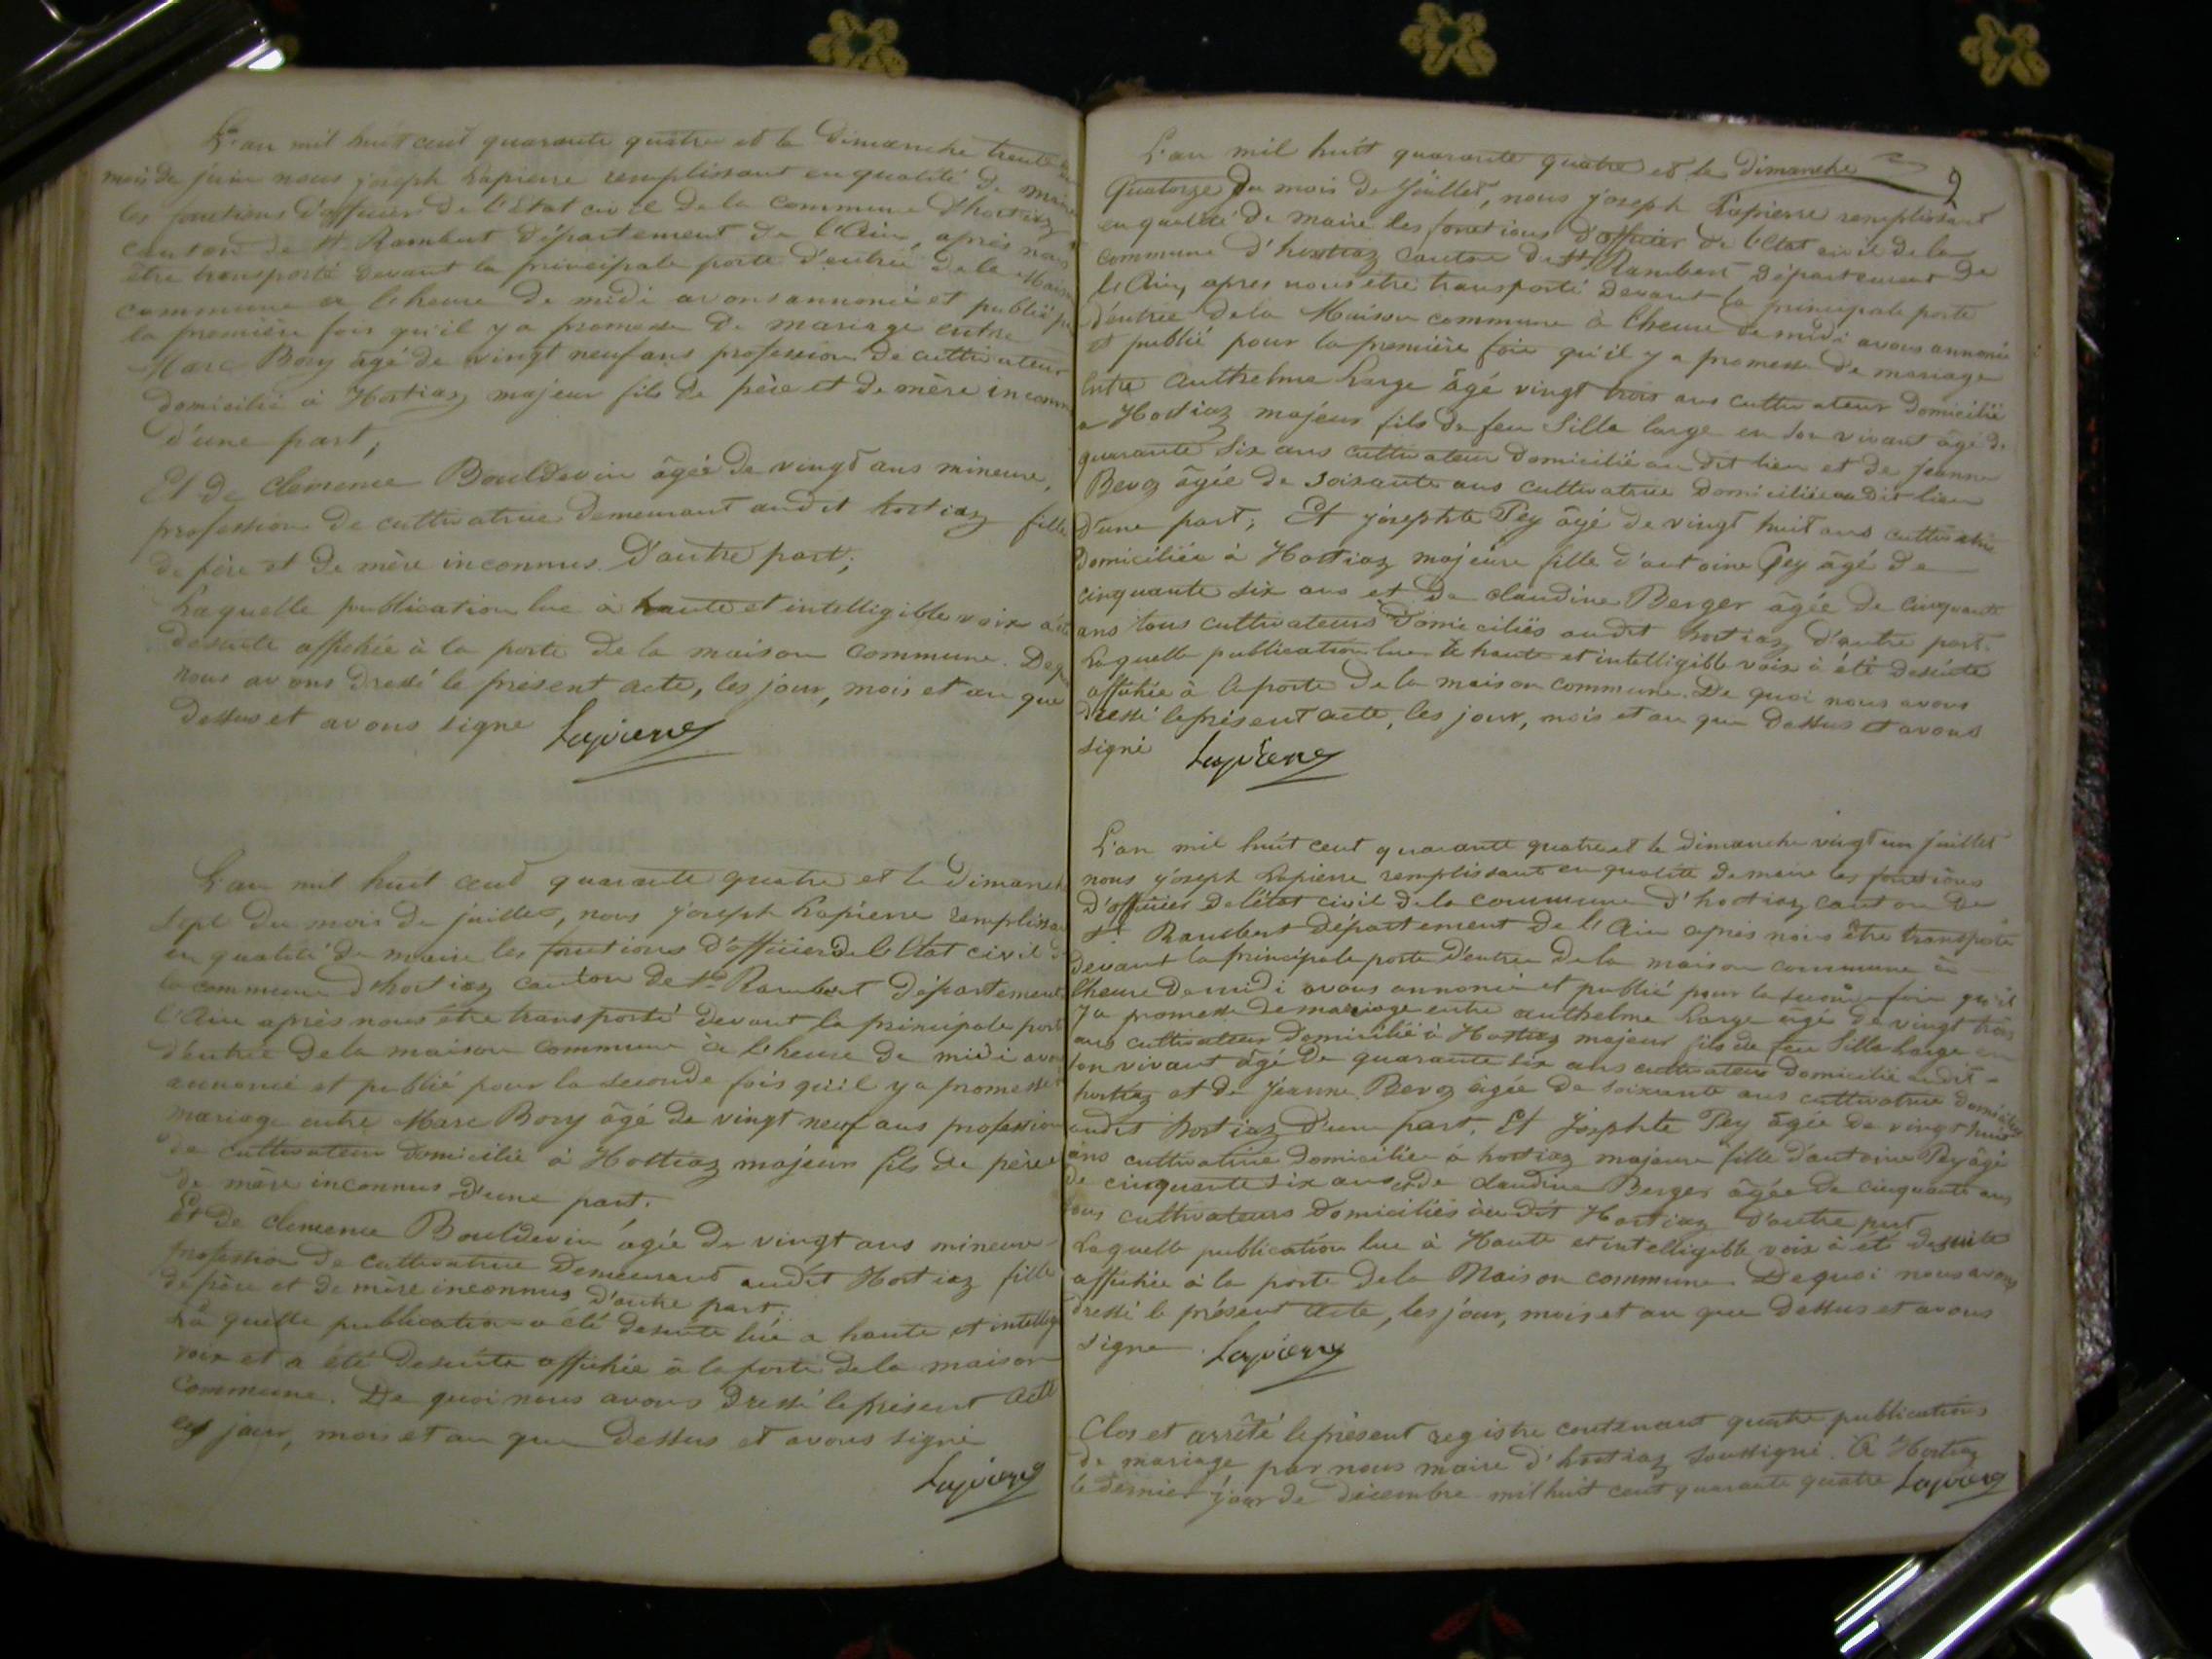 L'an mil huit cent quarante quatre et le Dimanche trente du
mois de juin nous joseph Lapierre remplissant en qualité de maire
les fonctions d'officier de l'Etat civil de la Commune d'hostiaz
canton de St Rambert département de l'Ain, après nous
être transporté devant la principale porte d'entrée de la Maison
commune a l'heure de midi avons annoncé et publié pr
la première fois qu'il y a promesse de mariage entre
Marc Bory âgé de vingt neuf ans profession de cultivateur
domicilié à Hostiaz majeur fils de père et de mère inconnus
d'une part,
Et de clemence Bouldevin âgée de vingt ans mineure,
profession de cultivatrice demeurant audit hostiaz fille
de père et de mère inconnus D'autre part;
Laquelle publication lue à haute et intelligible voix a été
desuite affichée à la porte de la maison commune. De quoi
nous avons dressé le présent acte, les jour, mois et an que
dessus et avons signe Lapierre
L'an mil huit cent quarante quatre et le Dimanche
sept du mois de juillet, nous joseph Lapierre remplissant
en qualité de maire les fonctions d'officier de l'Etat civil de
la commune d'hostiaz canton de St Rambert département
l'Ain après nous être transporté devant la principale porte
d'entrée de la maison commune à l'heure de midi avons
annoncé et publié pour la seconde fois qu'il y a promesse de
mariage entre Marc Bory âgé de vingt neuf ans profession
de cultivateur domicilié à Hostiaz majeur fils de père et
de mère inconnus d'une part.
Et de clemence Bouldevin âgée de vingt ans mineure
profession de cultivatrice demeurant audit Hostiaz fille
de père et de mère inconnus d'autre part.
La quelle publication a été desuite lue a haute et intellig
voix et a été desuite affichée à la porte de la maison
commune. De quoi nous avons dressé le présent acte
les jour, mois et an que dessus et avons signé
Lapierre
2
L'an mil huit quarante quatre et le Dimanche
Quatorze du mois de Juillet, nous joseph Lapierre remplissant
en qualité de maire les fonctions d'officier de l'Etat civil de la
commune d'hostiaz canton de St Rambert département de
l'Ain, apres nous être transporté devant la principale porte
d'entrée de la Maison commune à l'heure de midi avons annoncé
et publié pour la première fois qu'il y a promesse de mariage
Entre Anthelme Large âgé vingt trois ans cultivateur domicilié
a Hostiaz majeur fils de feu Silla large en son vivant âgé de
quarante six ans cultivateur domicilié au dit lieu et de Jeanne
Bevoz âgée de soixante ans cultivatrice domiciliée au dit lieu
d'une part; Et josephte Pey âgé de vingt huit ans cultivatrice
domiciliée à Hostiaz majeure fille d'antoine Pey âgé de
cinquante six ans et de claudine Berger âgée de cinquante
ans tous cultivateurs domiciliés audit hostiaz d'autre part.
Laquelle publication lue à haute et intelligible voix à été desuite
affichée à la porte de la maison commune. De quoi nous avons
dressé le présent acte, les jour, mois et an que dessus et avons
signé Lapierre
L'an mil huit cent quarante quatre et le dimanche vingt un juillet
nous joseph Lapierre remplissant en qualité de maire les fonctions
d'officier de l'état civil de la commune d'hostiaz canton de
St Rambert département de l'Ain après nous être transporté
devant la principale porte d'entrée de la maison commune à
l'heure de midi avons annoncé et publié pour la seconde fois qu'il
y a promesse de mariage entre anthelme Large âgé de vingt trois
ans cultivateur domicilié à Hostiaz majeur fils de feu Silla Large en
son vivant âgé de quarante six ans cultivateur domicilié audit
hostiaz et de Jeanne Bevoz âgée de soixante ans cultivatrice domiciliée
audit Hostiaz d'une part. Et Josephte Pey âgée de vingt huit
ans cultivatrice domiciliée à hostiaz majeure fille d'antoine Pey âgé
de cinquante six ans et de claudine Berger âgée de cinquante ans
tous cultivateurs domiciliés au dit Hostiaz d'autre part
Laquelle publication lue à Haute et intelligible voix à été desuite
affichée à la porte de la Maison commune. De quoi nous avons
dressé le présent acte, les jour, mois et an que dessus et avons
signe. Lapierre
Clos et arrêté le présent registre contenant quatre publications
de mariage par nous maire d'hostiaz soussigné. A Hostiaz
le dernier jour de décembre mil huit cent quarante quatre Lapierre